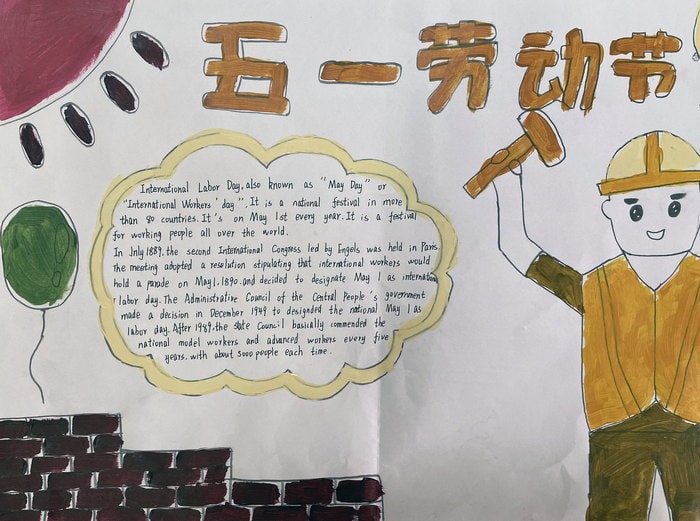 五一劳动节
International Labor Day, also known as "May Day" or
"International Workers' day", It is a national festival in more
than 80 countries. It's on May 1st every year. It is a festival
for working people all over the world.
In Jnly 1889, the second International Congress led by Engels was held in Paris.
The meeting adopted a resolution stipulating that international workers would
hold a parade on May 1, 1890, and decided to designate May 1 as international
labor day. The Administrative Council of the Central People's government
made a decision in December 1949 to designded the national May 1 as
labor day. After 1989, the state Council basially commended the
national model workers and advanced workers every five
years, with about 3000 people each time.